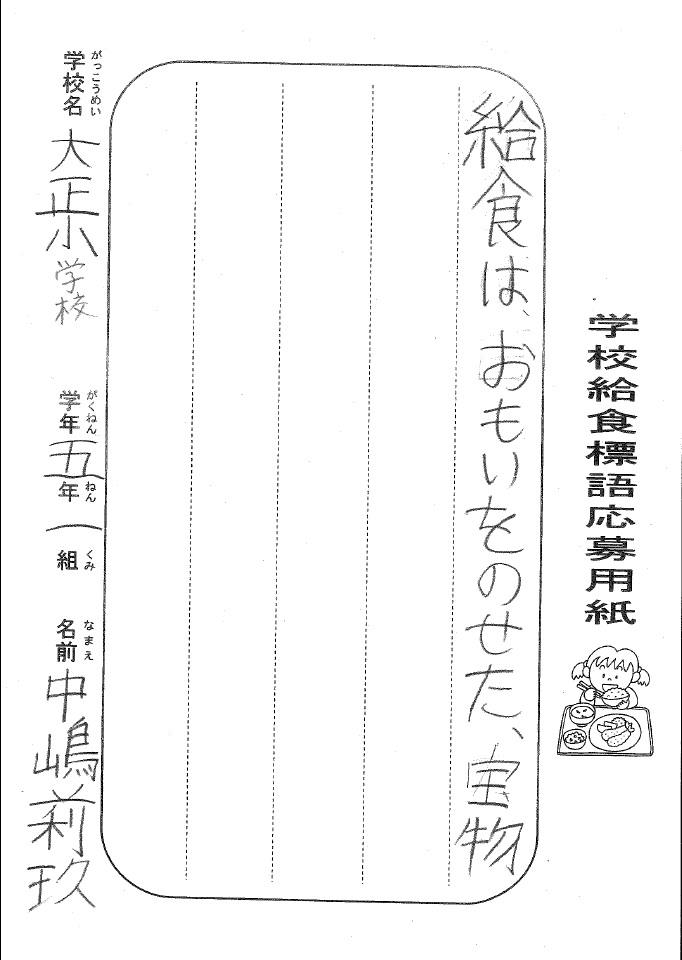 学校給食標語応募用紙
給食は、おもいをのせた、宝物
がっこうめい
学校名 大正小学校
がくねん ねん くみ
学年 五年 一組
なまえ
名前 中嶋莉玖